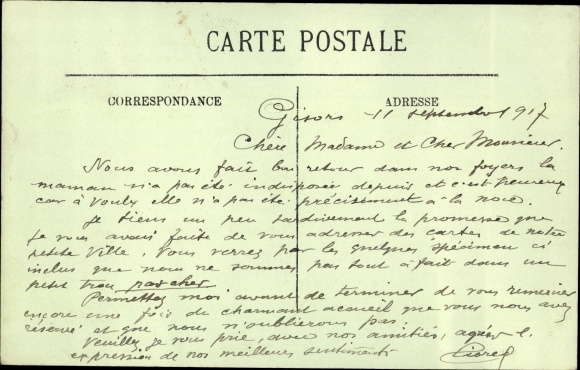 CARTE POSTALE
CORRESPONDANCE
ADRESSE
Gisors 11 septembre 1917
Chère Madame et Cher Monsieur.
Nous avons fait bon retour dans nos foyers la
maman n'a pas été indisposée depuis et c'est heureux
car à Voulx elle n'a pas été précisément à la noce.
Je tiens un peu tardivement la promesse que
je vous avais faite de vous adresser des cartes de notre
petite ville. Vous verrez par les quelques spécimen ci
inclus que nous ne sommes pas tout à fait dans un
petit trou pas cher
Permettez moi avant de terminer de vous remercier
encore une fois du charmant accueil que vous nous avez
réservé et que nous n'oublierons pas.
Veuillez je vous prie, avec nos amitiés, agréer l'
expression de nos meilleurs sentiments